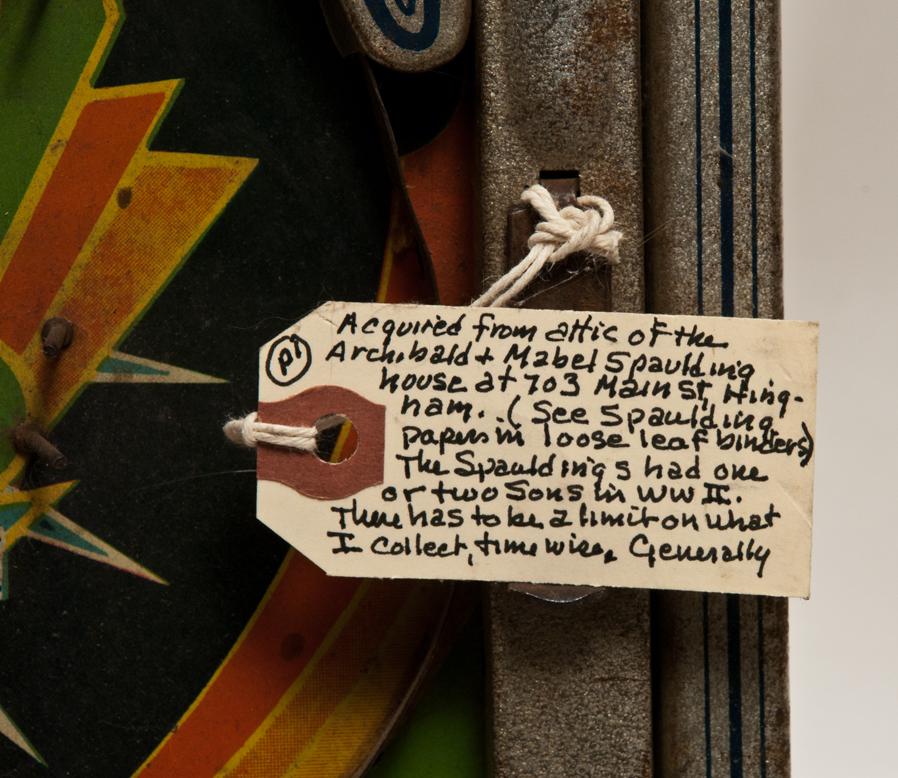 P1
Acquired from attic of the
Archibald + Mabel Spaulding
house at 703 Main St, Hing-
ham. (See Spaulding
papers in loose leaf binders)
The Spauldings had one
or two Sons in WW II.
There has to be a limit on what
I collect, time wise. Generally